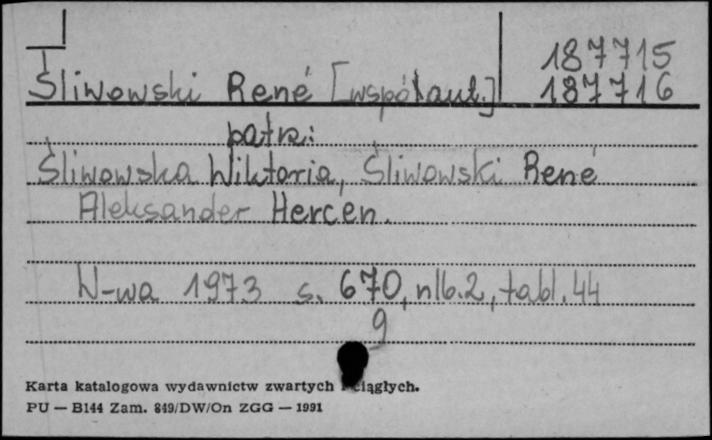 187715
Śliwowski René [współaut.] 187716
patrz:
Śliwowska Wiktoria, Śliwowski René
Aleksander Hercen.
W-wa 1973 s. 670, nlb. 2, tabl. 44
9
Karta katalogowa wydawnictw zwartych i ciągłych.
PU — B144 Zam. 849/DW/On ZGG — 1991